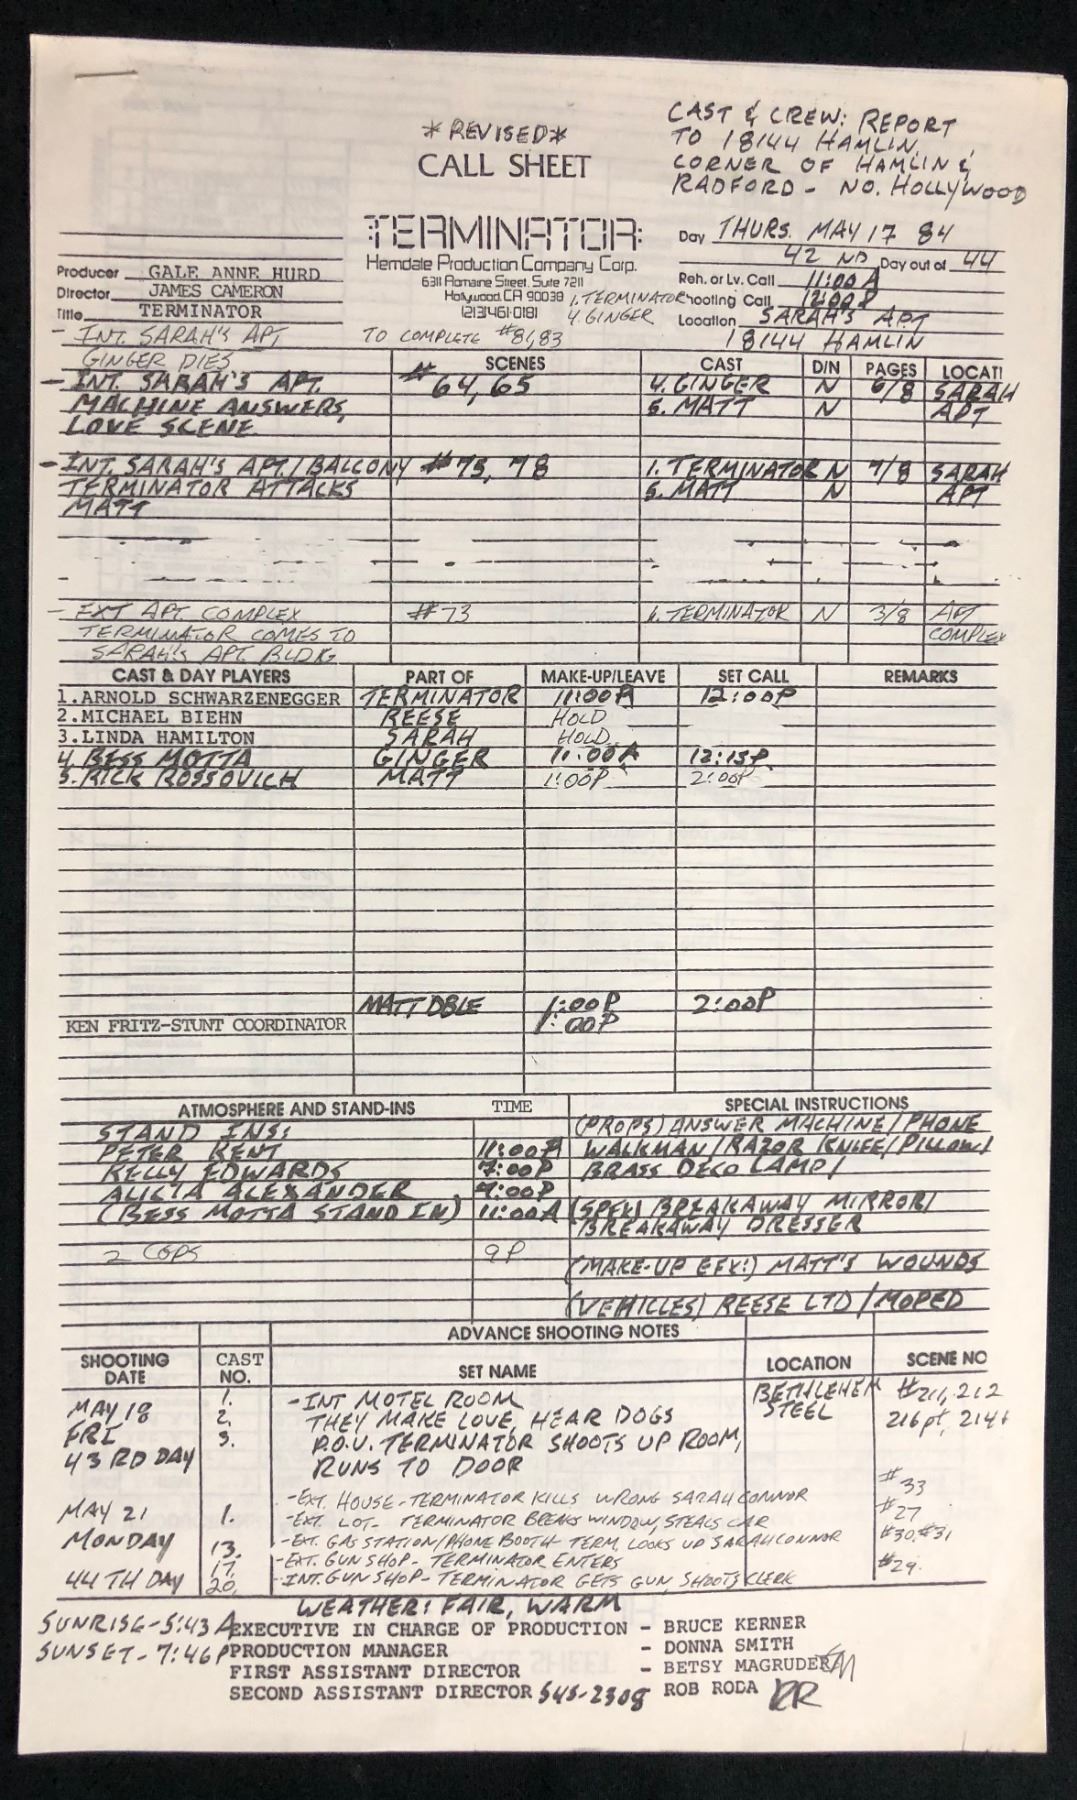 *REVISED*
CALL SHEET
CAST & CREW: REPORT
TO 18144 HAMLIN,
CORNER OF HAMLIN &
RADFORD - NO. HOLLYWOOD
TERMINATOR
Hemdale Production Company Corp.
6311 Romaine Street, Suite 7211
Hollywood, CA 90038
(213)461-0181
Day THURS. MAY 17 84
42 ND Day out of 44
Reh. or Lv. Call 11:00 A
Shooting Call 12:00 P
Location SARAH'S APT
18144 HAMLIN
Producer GALE ANNE HURD
Director JAMES CAMERON
Title TERMINATOR
- INT. SARAH'S APT TO COMPLETE #81,83 1. TERMINATOR
4. GINGER
GINGER DIES
SCENES CAST D/N PAGES LOCATI
- INT. SARAH'S APT. # 64, 65 4. GINGER N 6/8 SARAH
MACHINE ANSWERS, 5. MATT N APT
LOVE SCENE
- INT. SARAH'S APT./BALCONY #75, 78 1. TERMINATOR N 7/8 SARAH
TERMINATOR ATTACKS 5. MATT N APT
MATT
- EXT APT COMPLEX #73 1. TERMINATOR N 3/8 APT
TERMINATOR COMES TO COMPLEX
SARAH'S APT. BLDG
CAST & DAY PLAYERS PART OF MAKE-UP/LEAVE SET CALL REMARKS
1.ARNOLD SCHWARZENEGGER TERMINATOR 11:00A 12:00P
2.MICHAEL BIEHN REESE HOLD
3.LINDA HAMILTON SARAH HOLD
4. BESS MOTTA GINGER 11:00A 12:15P
5. RICK ROSSOVICH MATT 1:00P 2:00P
MATT DBLE 1:00P 2:00P
KEN FRITZ-STUNT COORDINATOR 1:00P
ATMOSPHERE AND STAND-INS TIME SPECIAL INSTRUCTIONS
STAND INS: (PROPS) ANSWER MACHINE/PHONE
PETER KENT 11:00A WALKMAN/RAZOR KNIFE/PILLOW/
KELLY EDWARDS 7:00P BRASS DECO LAMP/
ALICIA ALEXANDER 7:00P
(BESS MOTTA STAND IN) 11:00A (SPFX) BREAKAWAY MIRROR/
BREAKAWAY DRESSER
2 COPS 9P
(MAKE-UP EFX:) MATT'S WOUNDS
(VEHICLES) REESE LTD/MOPED
ADVANCE SHOOTING NOTES
SHOOTING DATE CAST NO. SET NAME LOCATION SCENE NO
MAY 18 1. - INT MOTEL ROOM BETHLEHEM #211, 212
FRI 2. THEY MAKE LOVE, HEAR DOGS STEEL 216pt, 214
43 RD DAY 3. P.O.V. TERMINATOR SHOOTS UP ROOM,
RUNS TO DOOR
- EXT. HOUSE - TERMINATOR KILLS WRONG SARAH CONNOR #33
MAY 21 1. - EXT. LOT - TERMINATOR BREAKS WINDOW, STEALS CAR #27
MONDAY 13. - EXT. GAS STATION/PHONE BOOTH - TERM. LOOKS UP SARAH CONNOR #30, #31
17. - EXT. GUN SHOP - TERMINATOR ENTERS
44TH DAY 20. - INT. GUN SHOP - TERMINATOR GETS GUN, SHOOTS CLERK #29.
WEATHER: FAIR, WARM
SUNRISE-5:43 A EXECUTIVE IN CHARGE OF PRODUCTION - BRUCE KERNER
SUNSET-7:46P PRODUCTION MANAGER - DONNA SMITH
FIRST ASSISTANT DIRECTOR - BETSY MAGRUDER
SECOND ASSISTANT DIRECTOR 545-2308 ROB RODA RR